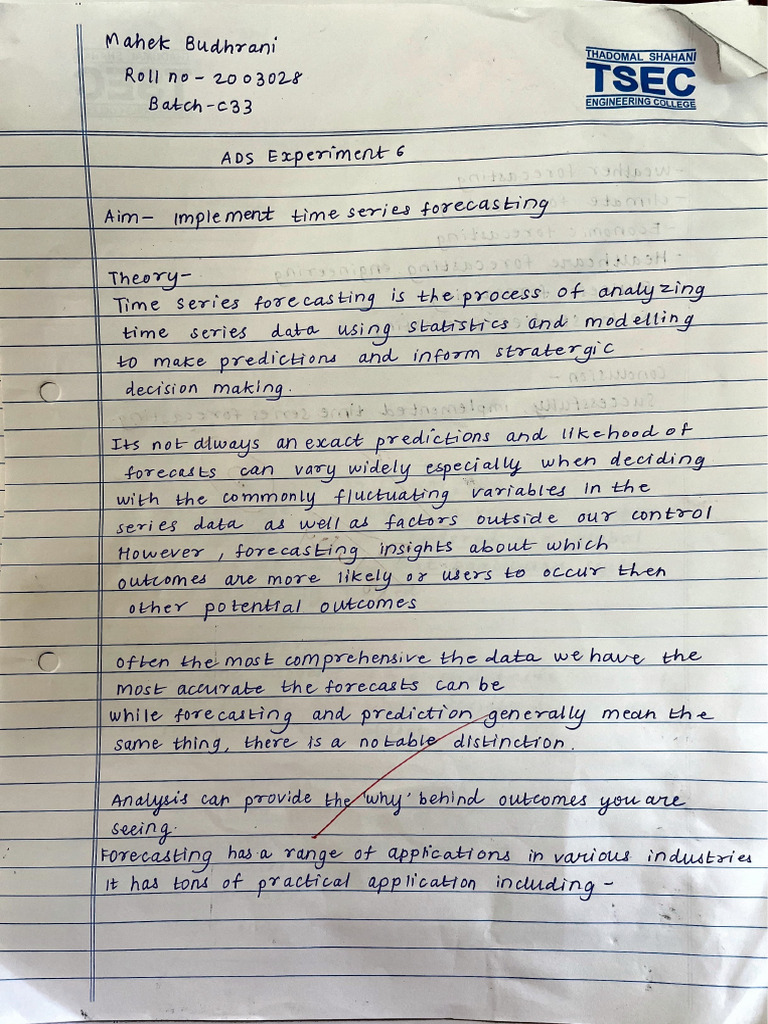 Mahek Budhrani
Roll no - 2003028
Batch - C33
THADOMAL SHAHANI
TSEC
ENGINEERING COLLEGE
ADS Experiment 6
Aim - Implement time series forecasting
Theory -
Time series forecasting is the process of analyzing
time series data using statistics and modelling
to make predictions and inform stratergic
decision making.
Its not always an exact predictions and likehood of
forecasts can vary widely especially when deciding
with the commonly fluctuating variables in the
series data as well as factors outside our control
However, forecasting insights about which
outcomes are more likely or users to occur then
other potential outcomes
Often the most comprehensive the data we have the
most accurate the forecasts can be
while forecasting and prediction generally mean the
same thing, there is a notable distinction.
Analysis can provide the 'why' behind outcomes you are
seeing.
Forecasting has a range of applications in various industries
It has tons of practical application including -